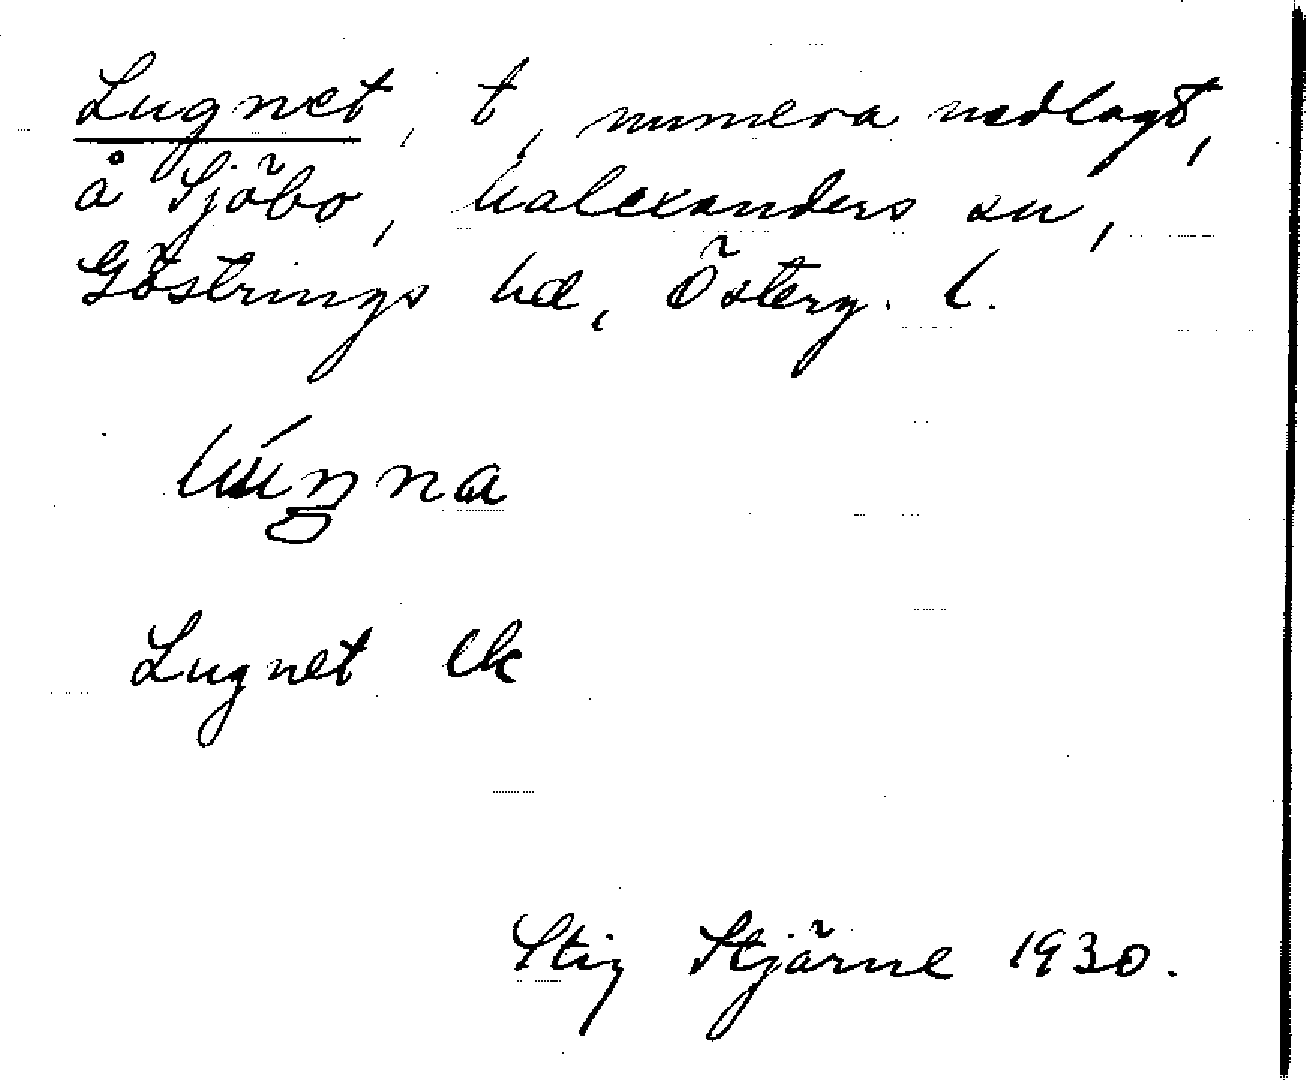 Lugnet, t, numera nedlagt,
å Sjöbo, Walexanders sn,
Göstrings hd, Österg. l.
Lugnet ek
Stig Stjärne 1930.